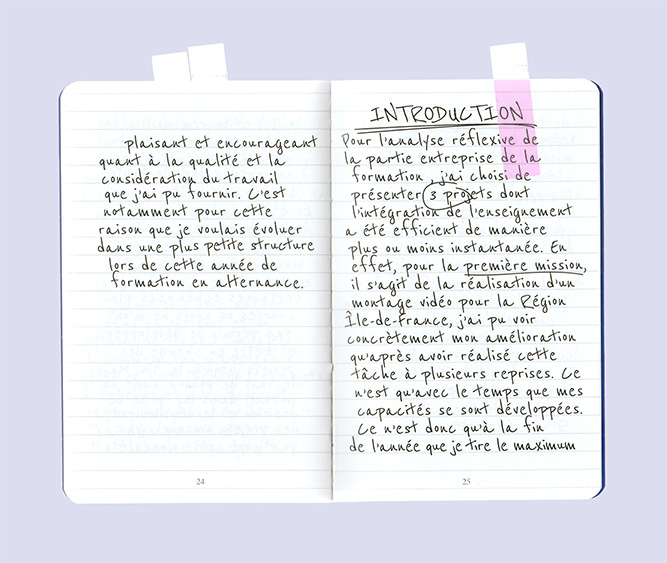 plaisant et encourageant
quant à la qualité et la
considération du travail
que j'ai pu fournir. C'est
notamment pour cette
raison que je voulais évoluer
dans une plus petite structure
lors de cette année de
formation en alternance.
24
INTRODUCTION
Pour l'analyse réflexive de
la partie entreprise de la
formation, j'ai choisi de
présenter 3 projets dont
l'intégration de l'enseignement
a été efficient de manière
plus ou moins instantanée. En
effet, pour la première mission,
il s'agit de la réalisation d'un
montage vidéo pour la Région
Île-de-France, j'ai pu voir
concrètement mon amélioration
qu'après avoir réalisé cette
tâche à plusieurs reprises. Ce
n'est qu'avec le temps que mes
capacités se sont développées.
Ce n'est donc qu'à la fin
de l'année que je tire le maximum
25